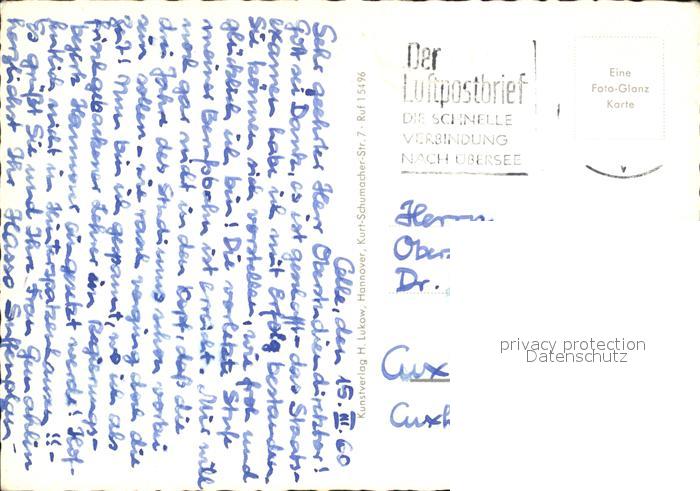 Celle, den 15. III. 60
Sehr geehrter Herr Oberstudiendirektor!
Gott sei Dank, es ist geschafft - das Staats-
examen habe ich mit Erfolg bestanden.
Sie können sich vorstellen, wie froh und
glücklich ich bin! Die vorletzte Stufe
meiner Berufsbahn ist erreicht. Mir will
noch gar nicht in den Kopf, daß die
drei Jahre des Studiums schon vorbei
sein sollen - wie rasch verging doch die
Zeit! Nun bin ich gespannt, wo ich als
frischgebackener Lehrer im Regierungs-
bezirk Hannover eingesetzt werde! Hof-
fentlich nicht in Hinterspatzenhausen!! -
Es grüßt Sie und Ihre Frau Gemahlin
herzlichst Ihr
Kunstverlag H. Lukow, Hannover, Kurt-Schumacher-Str. 7 · Ruf 15496
Der
Luftpostbrief
DIE SCHNELLE
VERBINDUNG
NACH ÜBERSEE
Eine
Foto-Glanz
Karte
Herrn
Ober
Dr.
Cux
Cuxh
privacy protection
Datenschutz